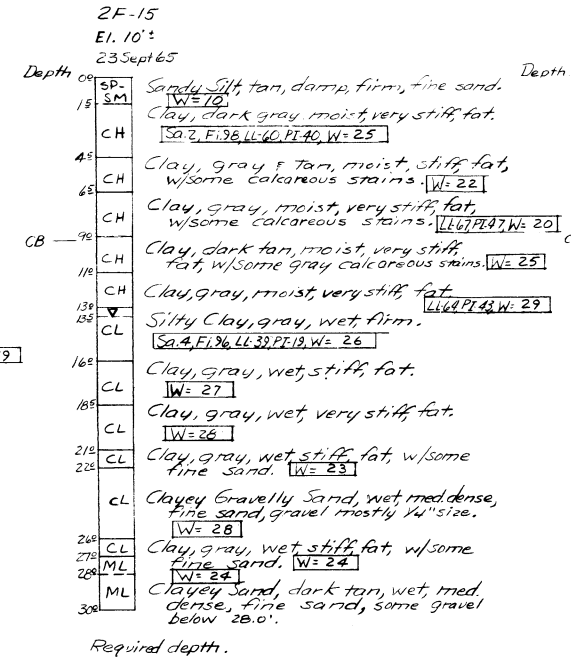 2F-15
El. 10'±
23 Sept 65
Depth
Depth
0.0 SP-SM Sandy Silt, tan, damp, firm, fine sand.
W=10
1.5
CH Clay, dark gray moist, very stiff, fat.
Sa.2, Fi.98, LL-60, PI-40, W=25
4.5
CH Clay, gray & tan, moist, stiff, fat,
w/some calcareous stains. W=22
6.5
CH Clay, gray, moist, very stiff, fat,
w/some calcareous stains. LL-67, PI-47, W=20
CB 9.0
CH Clay, dark tan, moist, very stiff,
fat, w/some gray calcareous stains. W=25
11.0
CH Clay, gray, moist, very stiff, fat
LL-64, PI-43, W=29
13.0
13.5
CL Silty Clay, gray, wet, firm.
Sa.4, Fi.96, LL-39, PI-19, W=26
9
16.0
CL Clay, gray, wet, stiff, fat.
W=27
18.5
CL Clay, gray, wet, very stiff, fat.
W=28
21.0
CL Clay, gray, wet, stiff, fat, w/some
fine sand. W=23
22.0
CL Clayey Gravelly Sand, wet, med. dense,
fine sand, gravel mostly 1/4" size.
W=28
26.0
CL Clay, gray, wet, stiff, fat, w/some
27.0
ML fine sand. W=24
W=24
28.0
ML Clayey Sand, dark tan, wet, med.
dense, fine sand, some gravel
below 28.0'.
30.0
Required depth.